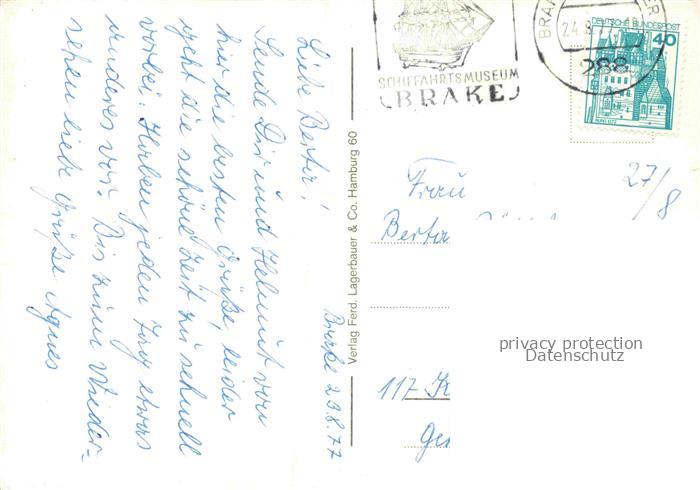 Brake 23.8.77
Liebe Berta!
Sende Dir und Helmut von
hier die besten Grüße, leider
geht die schöne Zeit zu schnell
vorbei. Haben jeden Tag etwas
anderes vor. Bis zum Wieder-
sehen liebe Grüße Agnes
Verlag Ferd. Lagerbauer & Co. Hamburg 60
SCHIFFAHRTSMUSEUM
BRAKE
BRA
24.8.
288
DEUTSCHE BUNDESPOST
40
27/8
Frau
Berta
117 K
Ges
privacy protection
Datenschutz